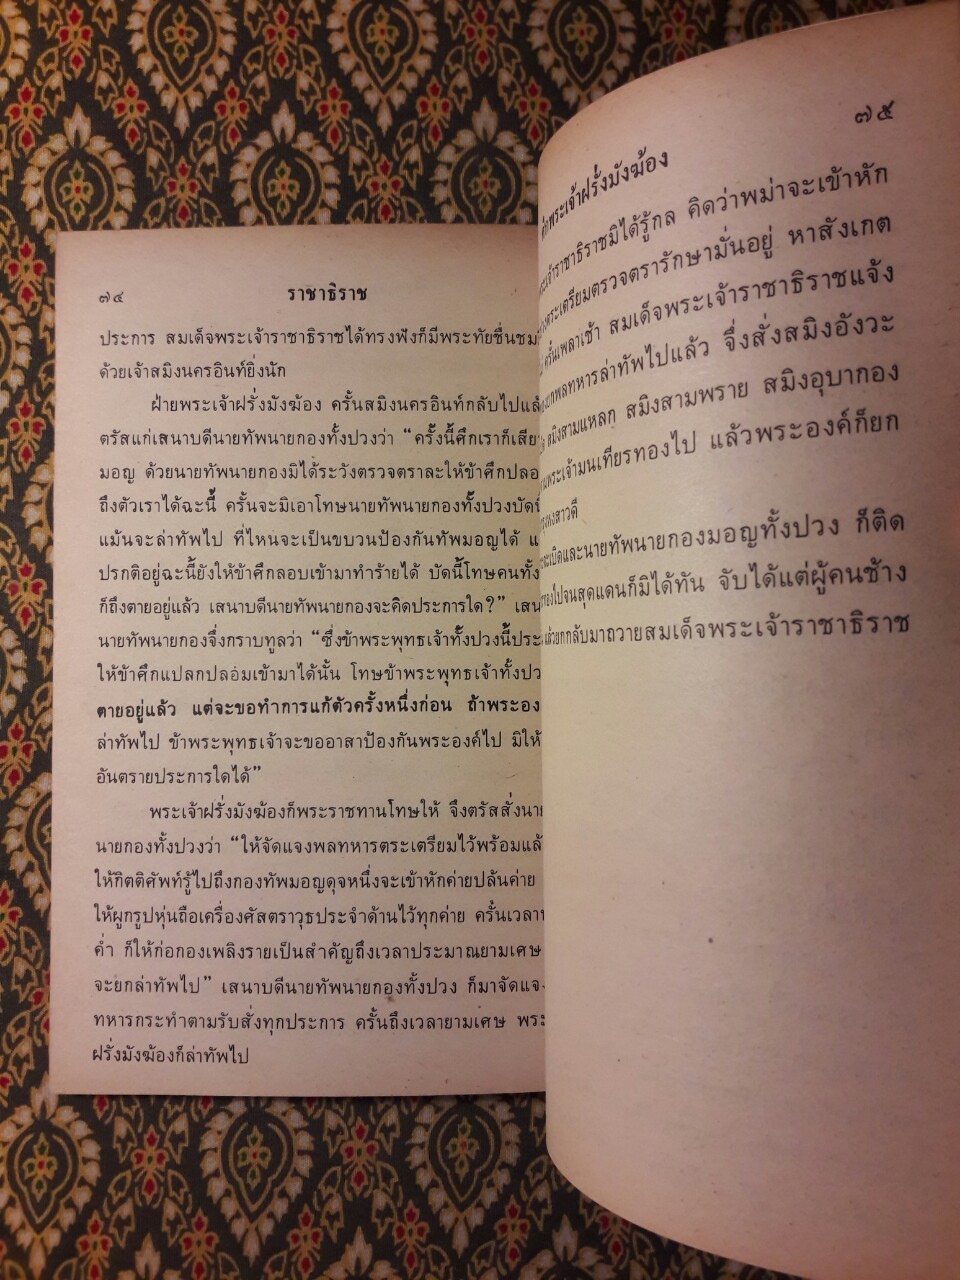 ๗๔ ราชาธิราช
ประการ สมเด็จพระเจ้าราชาธิราชได้ทรงฟังก็มีพระทัยชื่นชม
ด้วยเจ้าสมิงนครอินท์ยิ่งนัก
ฝ่ายพระเจ้าฝรั่งมังฆ้อง ครั้นสมิงนครอินท์กลับไปแล้
ตรัสแก่เสนาบดีนายทัพนายกองทั้งปวงว่า “ครั้งนี้ศึกเราก็เสีย
มอญ ด้วยนายทัพนายกองมิได้ระวังตรวจตราละให้ข้าศึกปลอ
ถึงตัวเราได้ฉะนี้ ครั้นจะมิเอาโทษนายทัพนายกองทั้งปวงบัดนี้
แม้นจะล่าทัพไป ที่ไหนจะเป็นขบวนป้องกันทัพมอญได้ แ
ปรกติอยู่ฉะนี้ยังให้ข้าศึกลอบเข้ามาทำร้ายได้ บัดนี้โทษคนทั้ง
ก็ถึงตายอยู่แล้ว เสนาบดีนายทัพนายกองจะคิดประการใด?” เสน
นายทัพนายกองจึ่งกราบทูลว่า “ซึ่งข้าพระพุทธเจ้าทั้งปวงนี้ประ
ให้ข้าศึกแปลกปลอมเข้ามาได้นั้น โทษข้าพระพุทธเจ้าทั้งปว
ตายอยู่แล้ว แต่จะขอทำการแก้ตัวครั้งหนึ่งก่อน ถ้าพระอง
ล่าทัพไป ข้าพระพุทธเจ้าจะขออาสาป้องกันพระองค์ไป มิให้
อันตรายประการใดได้”
พระเจ้าฝรั่งมังฆ้องก็พระราชทานโทษให้ จึงตรัสสั่งนาย
นายกองทั้งปวงว่า “ให้จัดแจงพลทหารตระเตรียมไว้พร้อมแล้
ให้กิตติศัพท์รู้ไปถึงกองทัพมอญดุจหนึ่งจะเข้าหักค่ายปล้นค่าย
ให้ผูกรูปหุ่นถือเครื่องศัสตราวุธประจำด้านไว้ทุกค่าย ครั้นเวลา
ค่ำ ก็ให้ก่อกองเพลิงรายเป็นสำคัญถึงเวลาประมาณยามเศษ
จะยกล่าทัพไป” เสนาบดีนายทัพนายกองทั้งปวง ก็มาจัดแจง
ทหารกระทำตามรับสั่งทุกประการ ครั้นถึงเวลายามเศษ พระ
ฝรั่งมังฆ้องก็ล่าทัพไป
๗๕
ศึกพระเจ้าฝรั่งมังฆ้อง
พระเจ้าราชาธิราชมิได้รู้กล คิดว่าพม่าจะเข้าหัก
ตระเตรียมตรวจตรารักษามั่นอยู่ หาสังเกต
ครั้นเพลาเช้า สมเด็จพระเจ้าราชาธิราชแจ้ง
พลทหารล่าทัพไปแล้ว จึ่งสั่งสมิงอังวะ
สมิงสามแหลก สมิงสามพราย สมิงอุบากอง
พระเจ้ามนเทียรทองไป แล้วพระองค์ก็ยก
หงสาวดี
และนายทัพนายกองมอญทั้งปวง ก็ติด
ไปจนสุดแดนก็มิได้ทัน จับได้แต่ผู้คนช้าง
แล้วยกกลับมาถวายสมเด็จพระเจ้าราชาธิราช